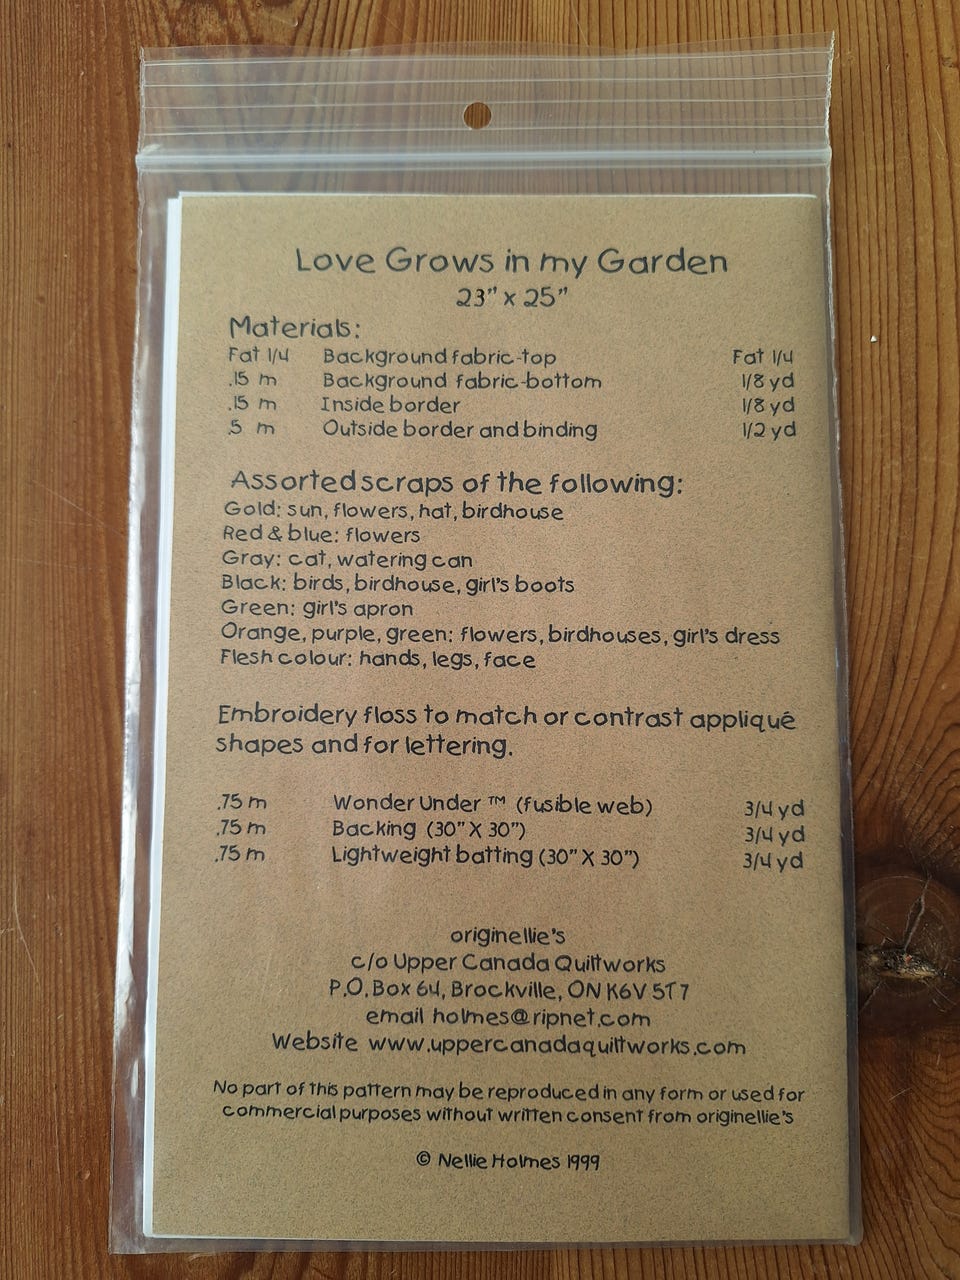 Love Grows in my Garden
23" x 25"
Materials:
Fat 1/4 Background fabric-top Fat 1/4
.15 m Background fabric-bottom 1/8 yd
.15 m Inside border 1/8 yd
.5 m Outside border and binding 1/2 yd
Assorted scraps of the following:
Gold: sun, flowers, hat, birdhouse
Red & blue: flowers
Gray: cat, watering can
Black: birds, birdhouse, girl's boots
Green: girl's apron
Orange, purple, green: flowers, birdhouses, girl's dress
Flesh colour: hands, legs, face
Embroidery floss to match or contrast appliqué
shapes and for lettering.
.75 m Wonder Under ™ (fusible web) 3/4 yd
.75 m Backing (30" X 30") 3/4 yd
.75 m Lightweight batting (30" X 30") 3/4 yd
originellie's
c/o Upper Canada Quiltworks
P.O. Box 64, Brockville, ON K6V 5T7
email holmes@ripnet.com
Website www.uppercanadaquiltworks.com
No part of this pattern may be reproduced in any form or used for
commercial purposes without written consent from originellie's
© Nellie Holmes 1999